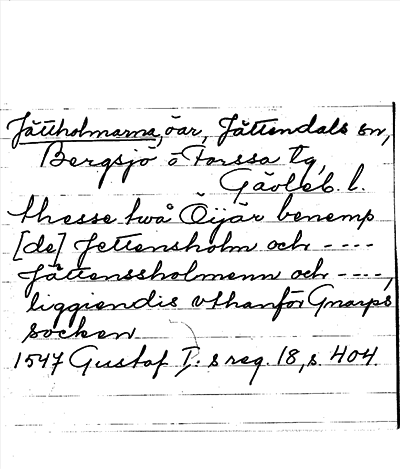 Jättholmarna, öar, Jättendals sn,
Bergsjö o Forssa tg,
Gävleb. l.
thesse twå Öijär benemp
[de] Jettensholm och ----
Jättenssholmenn och ----,
liggiendis vthanför Gnarps
socken
1547 Gustaf I:s reg. 18, s. 404.